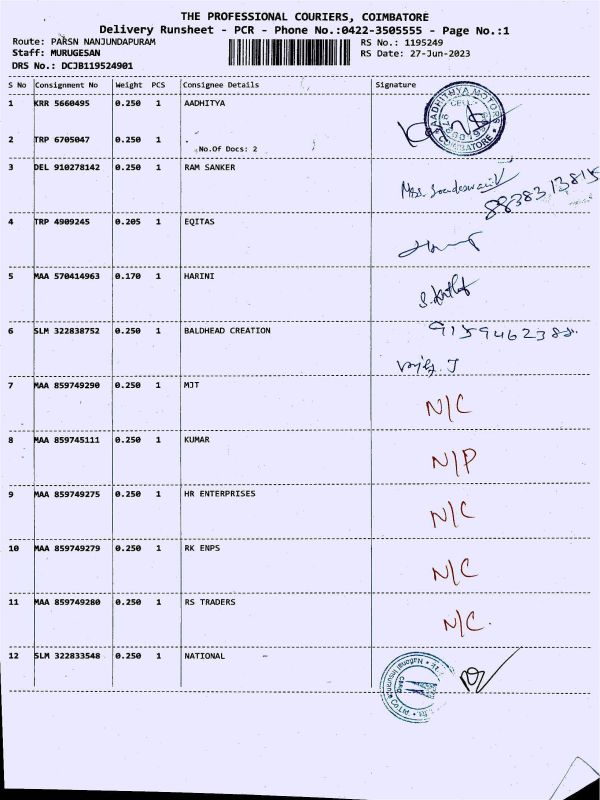 THE PROFESSIONAL COURIERS, COIMBATORE
Delivery Runsheet - PCR - Phone No.:0422-3505555 - Page No.:1
Route: PARSN NANJUNDAPURAM RS No.: 1195249
Staff: MURUGESAN RS Date: 27-Jun-2023
DRS No.: DCJB119524901
S No Consignment No Weight PCS Consignee Details Signature
1 KRR 5660495 0.250 1 AADHITYA
AADHITHYA MOTORS
CELL:
COIMBATORE
2 TRP 6705047 0.250 1 .
No.Of Docs: 2
3 DEL 910278142 0.250 1 RAM SANKER
8838313815
4 TRP 4909245 0.205 1 EQITAS
5 MAA 570414963 0.170 1 HARINI
6 SLM 322838752 0.250 1 BALDHEAD CREATION
9159462388
7 MAA 859749290 0.250 1 MJT N/C
8 MAA 859745111 0.250 1 KUMAR N/P
9 MAA 859749275 0.250 1 HR ENTERPRISES N/C
10 MAA 859749279 0.250 1 RK ENPS N/C
11 MAA 859749280 0.250 1 RS TRADERS N/C.
12 SLM 322833548 0.250 1 NATIONAL
National Insurance Co Ltd.